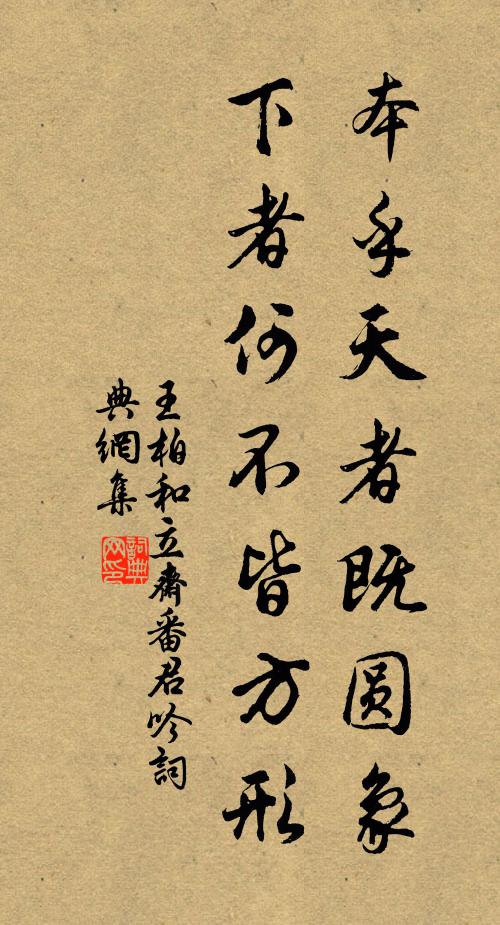 本乎天者既圆象
下者何不皆方形
王柏和立斋番君吟词
典網集
詞典网印